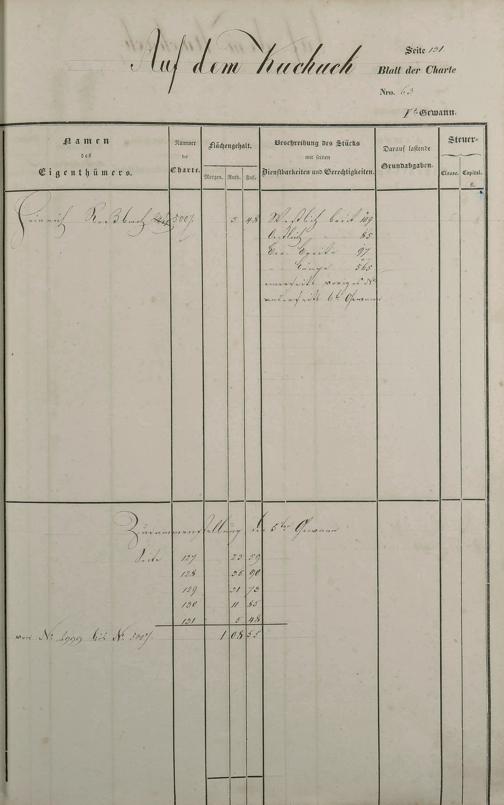 Auf dem Kuckuck
Seite 131
Blatt der Charte
Nro. 63
5te Gewann.
Namen
des
Eigenthümers.
Nummer
der
Charte.
Flächengehalt.
Morgen. Ruth. Fuß.
Beschreibung des Stücks
mit seinen
Dienstbarkeiten und Gerechtigkeiten.
Darauf lastende
Grundabgaben.
Steuer-
Classe. Capital.
fl.
Heinrich
5 48
Westlich breit 89
östlich " 85
Länge 565
anderseits 6te Gewann
Zusammenstellung der 5ten Gewann
Seite 127 23 59
128 36 90
129 31 73
130 11 85
131 5 48
von No. bis No.
1 08 55